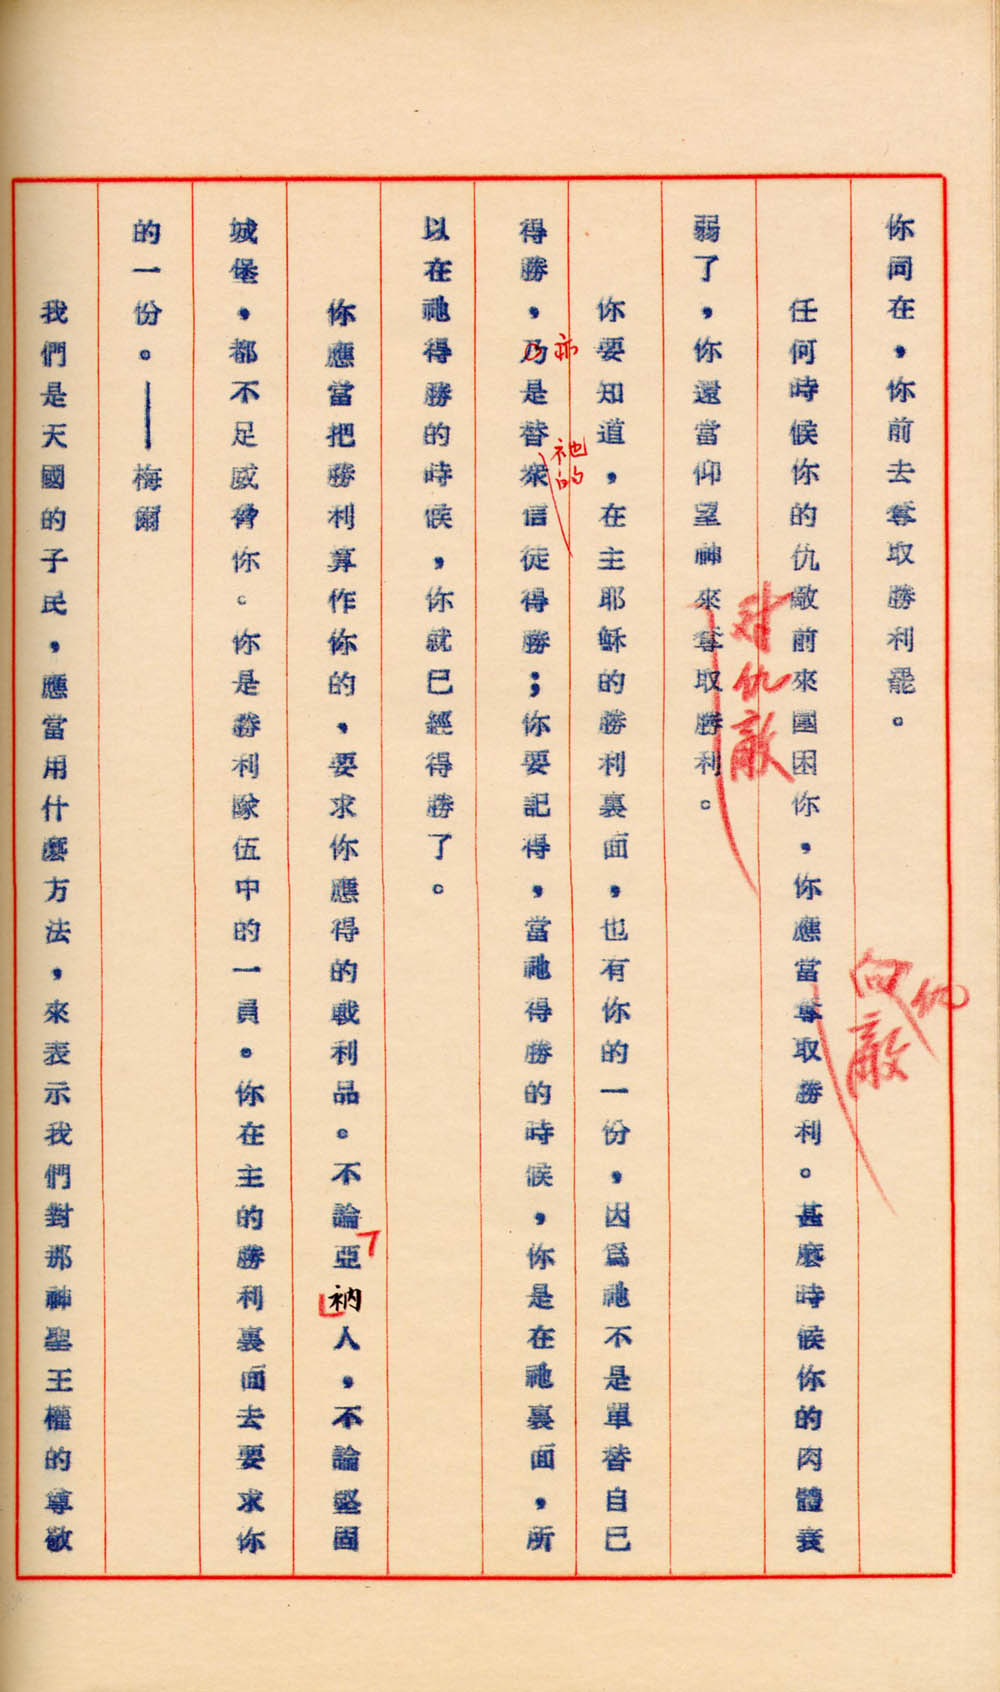 你同在，你前去奪取勝利罷。
任何時候你的仇敵前來圍困你，你應當奪取勝利。甚麼時候你的肉體衰
向仇敵
弱了，你還當仰望神來奪取勝利。
對仇敵
你要知道，在主耶穌的勝利裏面，也有你的一份，因爲祂不是單替自己
得勝，乃是替衆信徒得勝；你要記得，當祂得勝的時候，你是在祂裏面，所
亦
祂的
以在祂得勝的時候，你就已經得勝了。
你應當把勝利算作你的，要求你應得的戰利品。不論亞衲人，不論堅固
城堡，都不足威脅你。你是勝利隊伍中的一員。你在主的勝利裏面去要求你
的一份。——梅爾
我們是天國的子民，應當用什麼方法，來表示我們對那神聖王權的尊敬